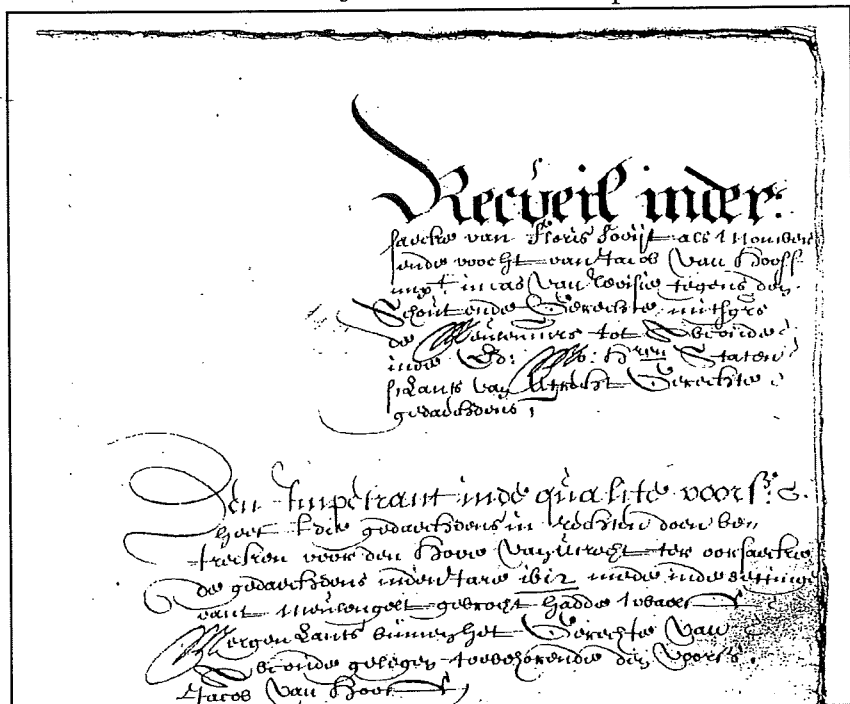 Recueil inder:
saecke van Floris Fooijt als Momber
ende voocht van Jacob van Hoof
impt. in cas van revisie tegens den
Schout ende Gerechte mitsgrs
de Meulenmrs tot
inde Ed: Mo: Hren Staten
slants van Utrecht Gerechte
gedaechdens
Den Impetrant inde qualite voors.
heeft die gedaechdens in rechten doen be-
trecken voor den Hove van Utrecht ter oorsaecke
de gedaechdens inden Jare mede inde settinge
vant meulengelt gebrocht hadde
Mergen Lants binnen het Gerechte van
gelegen toebehorende den voors.
Jacob van Hoof